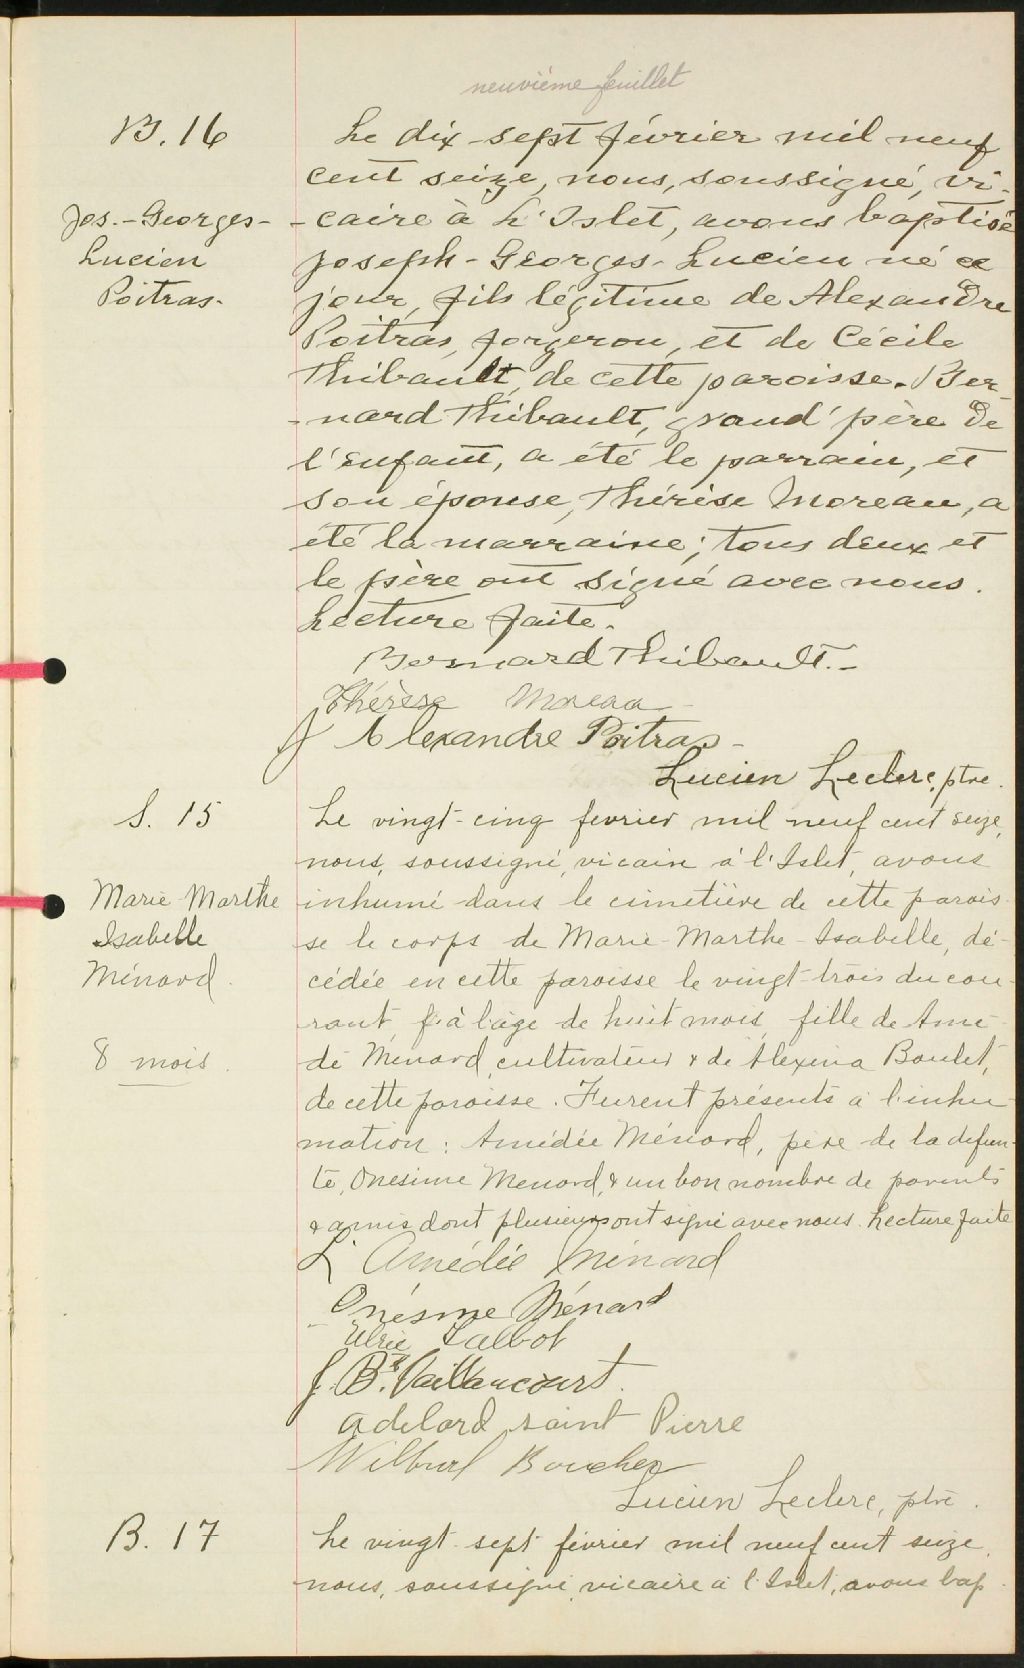 neuvième feuillet
B. 16
Jos.-Georges-
Lucien
Poitras.
Le dix-sept février mil neuf
cent seize, nous, soussigné, vi-
-caire à L'Islet, avons baptisé
Joseph-Georges-Lucien né ce
jour, fils légitime de Alexandre
Poitras, forgeron, et de Cécile
Thibault, de cette paroisse. Ber-
-nard Thibault, grand'père de
l'enfant, a été le parrain, et
son épouse, Thérèse Moreau, a
été la marraine; tous deux et
le père ont signé avec nous.
Lecture faite.
Bernard Thibault.-
Thérèse Moreau
J Alexandre Poitras-
Lucien Leclerc, ptre.
S. 15
Marie Marthe
Isabelle
Ménard.
8 mois.
Le vingt-cinq fevrier mil neuf cent seize,
nous, soussigné, vicaire à l'Islet, avons
inhumé dans le cimetière de cette parois-
se le corps de Marie-Marthe-Isabelle, dé-
cédée en cette paroisse le vingt-trois du cou-
rant, à l'âge de huit mois, fille de Amé-
dé Ménard, cultivateur & de Alexina Boulet,
de cette paroisse. Furent présents à l'inhu-
mation: Amédée Ménard, père de la défun-
te, Onésime Menard, & un bon nombre de parents
& amis dont plusieurs ont signé avec nous. Lecture faite
L. Amédée Ménard
Onésme Ménard
Ulric Talbot
J. Bte. Vaillancourt.
adelard saint Pierre
Wilbur Boucher
Lucien Leclerc, ptre.
B. 17
Le vingt-sept février mil neuf cent seize,
nous, soussigné, vicaire à l'Islet, avons bap-